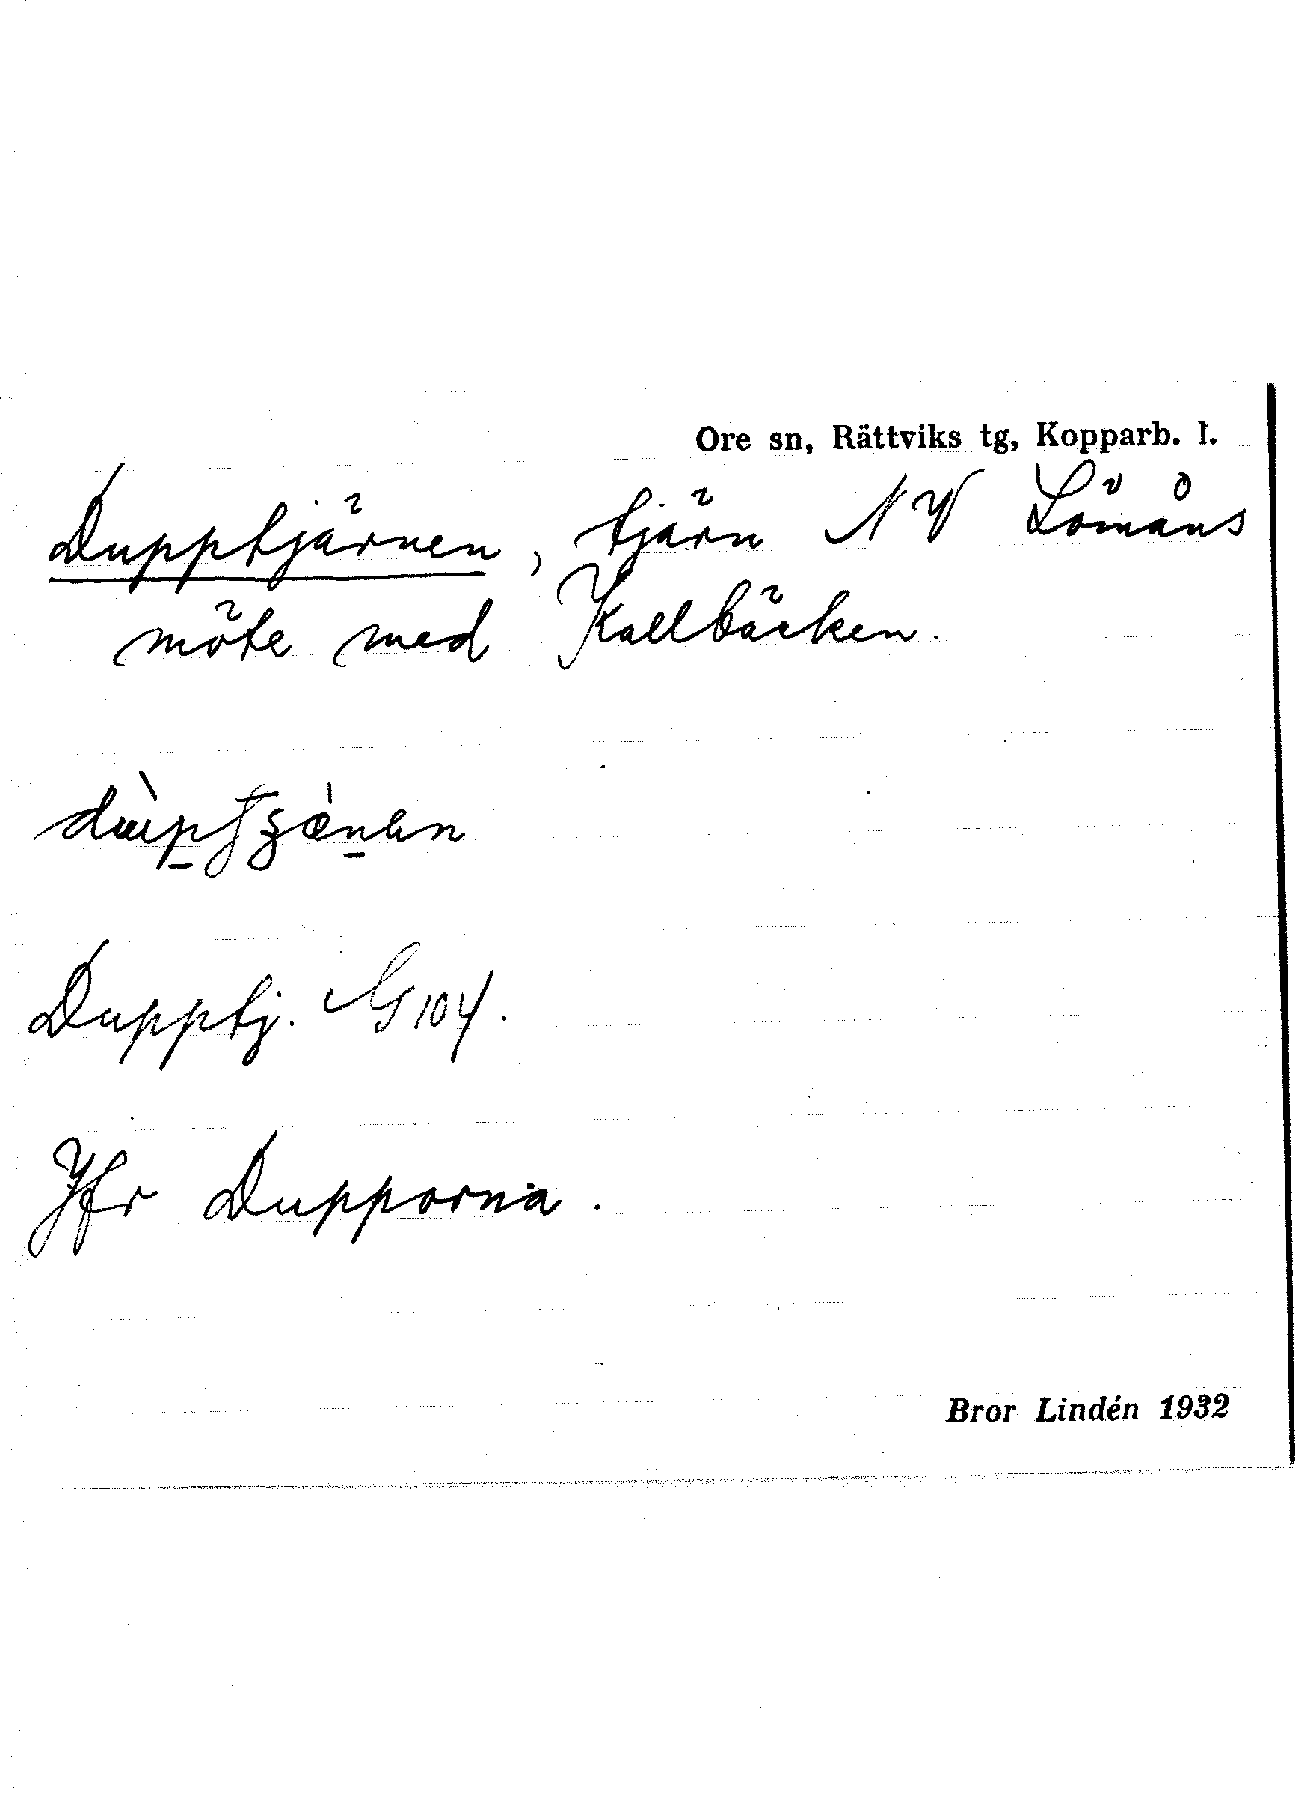 Ore sn, Rättviks tg, Kopparb. l.
Dupptjärnen, tjärn NV Lömåns
möte med Kallbäcken.
Dupptj. G 104.
Jfr Dupporna.
Bror Lindén 1932